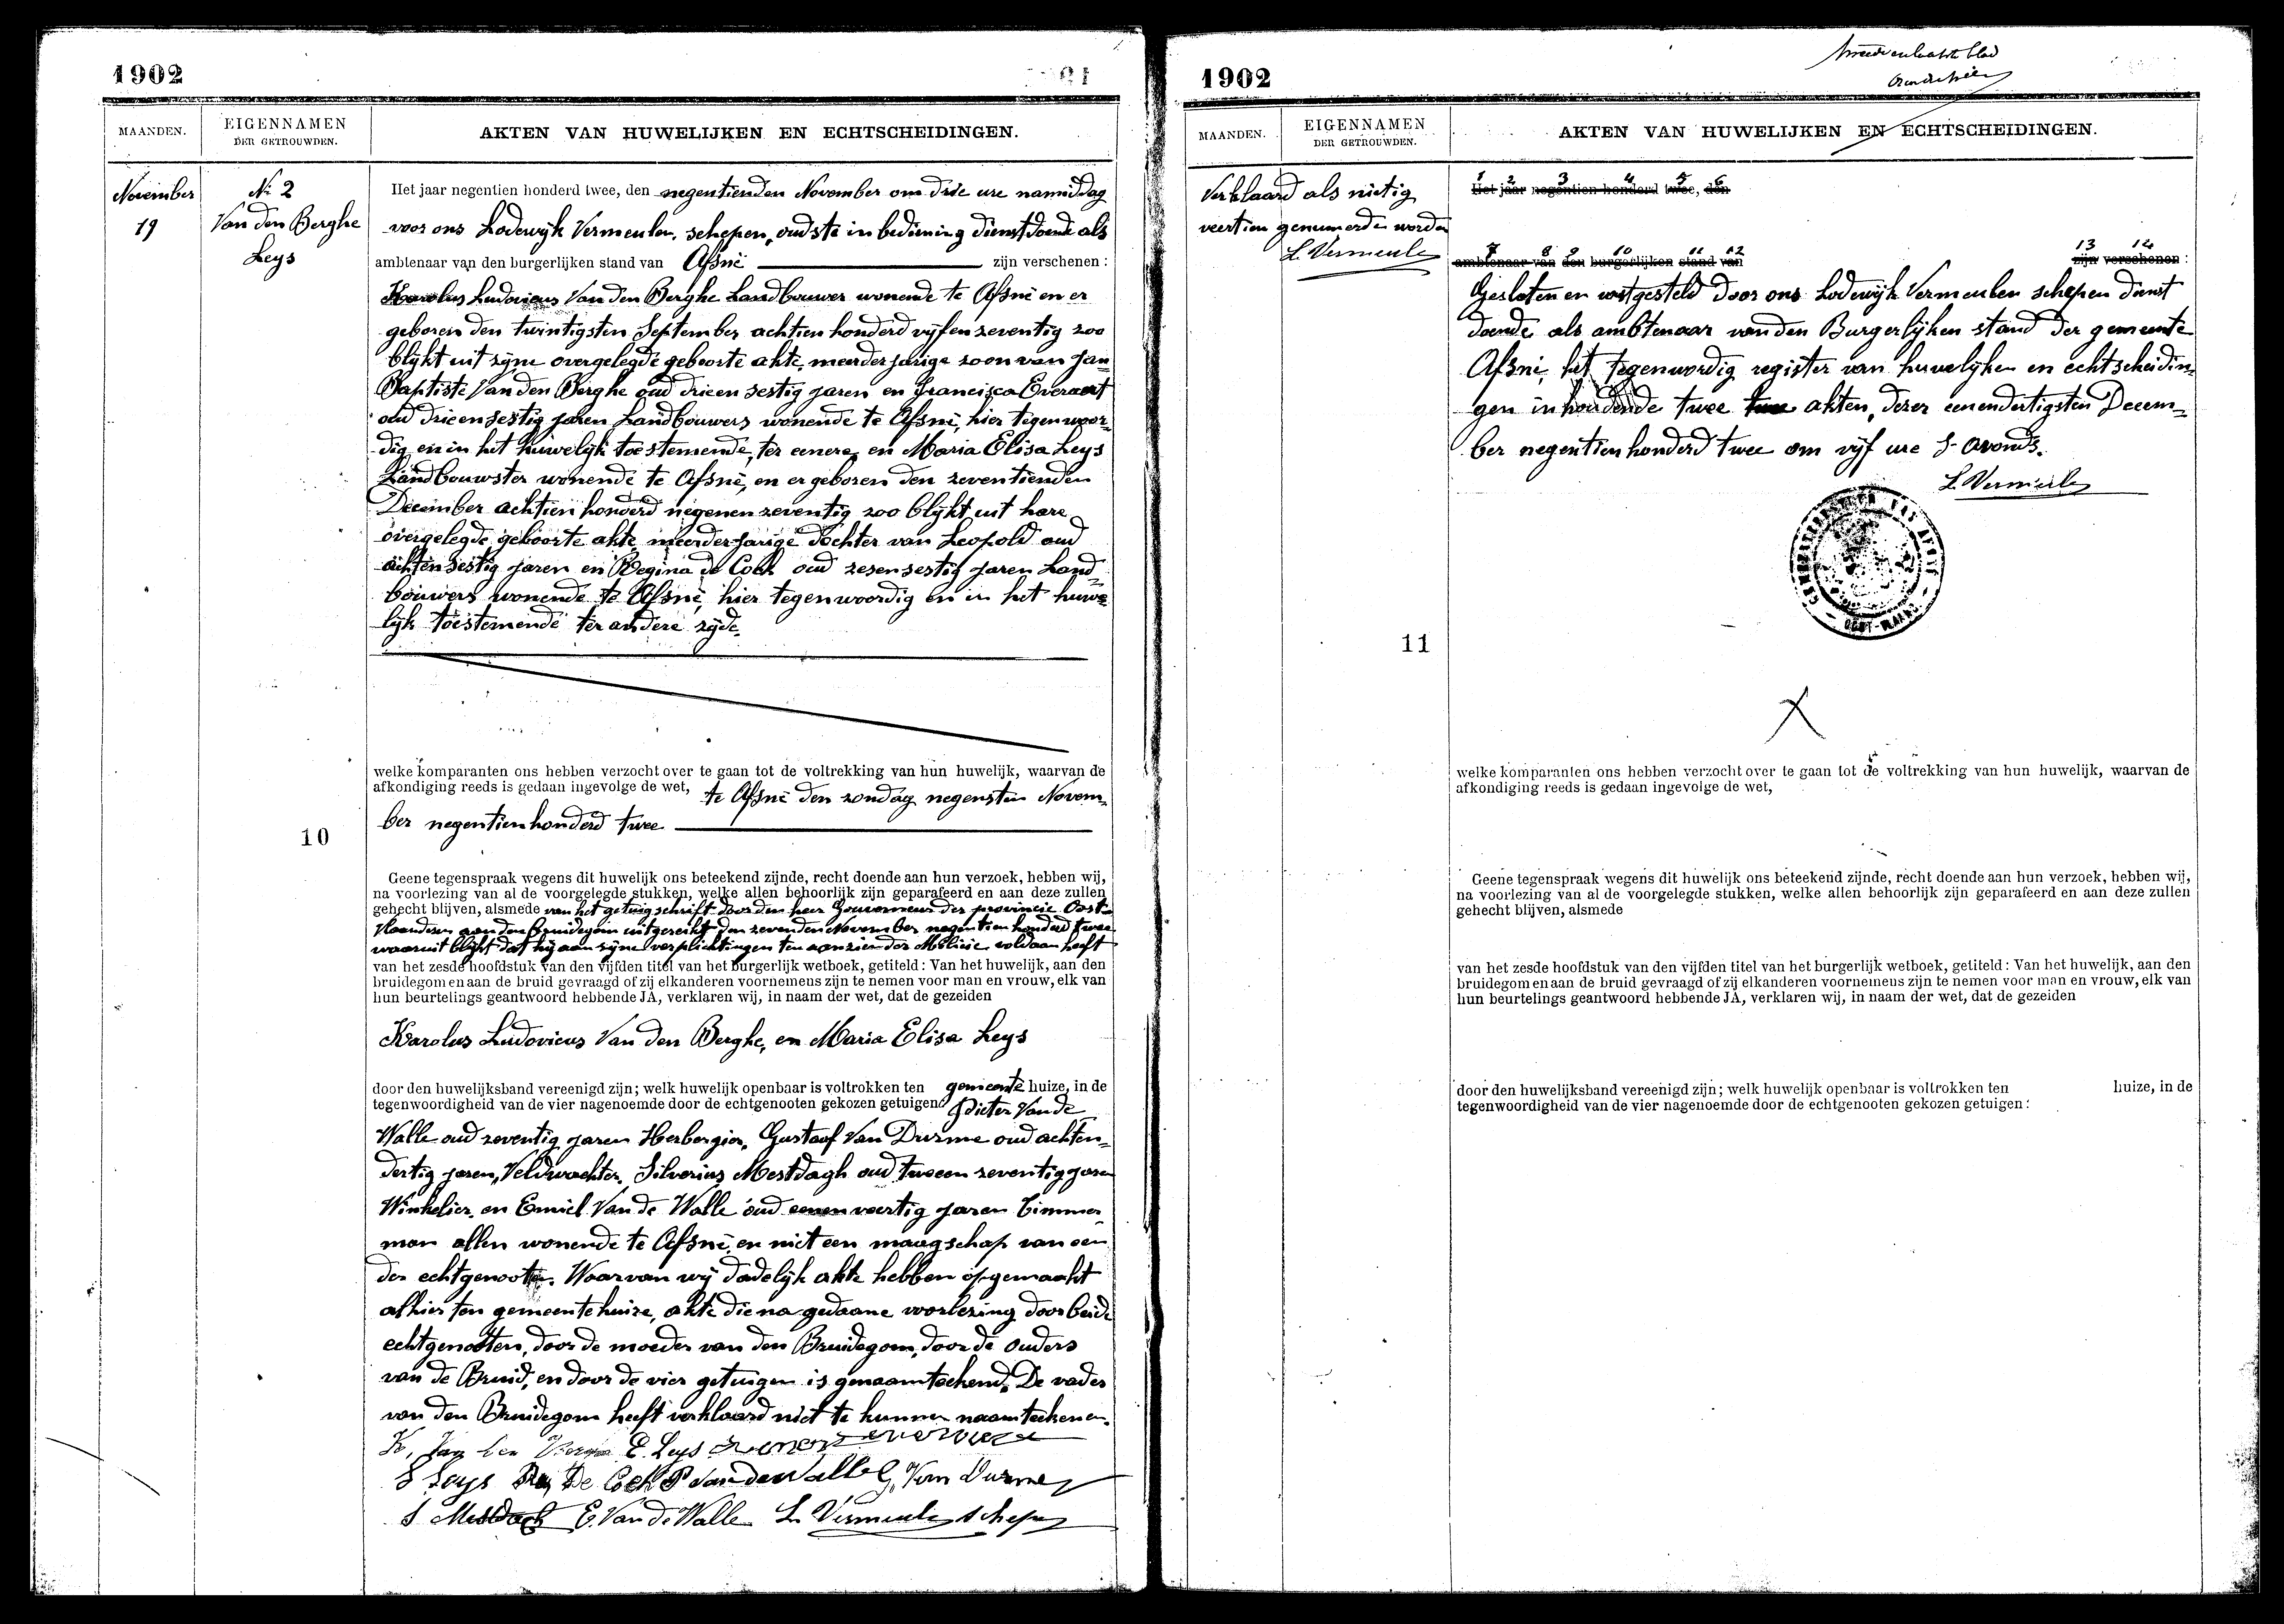 1902
MAANDEN.
EIGENNAMEN
DER GETROUWDEN.
AKTEN VAN HUWELIJKEN EN ECHTSCHEIDINGEN.
November
19
No 2
Van den Berghe
Leys
Het jaar negentien honderd twee, den negentienden November om drie ure namiddag
voor ons Lodewijk Vermeulen, schepen, oudste in bediening dienstdoende als
ambtenaar van den burgerlijken stand van Afsnè zijn verschenen :
Karolus Ludovicus Van den Berghe Landbouwer wonende te Afsnè en er
geboren den twintigsten September achtien honderd vijfenzeventig zoo
blijkt uit zijne overgelegde geboorte akte, meerderjarige zoon van Jan
Baptiste Van den Berghe oud drieensestig jaren en Francisca Everaert
oud drieensestig jaren Landbouwers wonende te Afsnè, hier tegenwoor-
dig en in het huwelijk toestemende, ter eenere, en Maria Elisa Leys
Landbouwster wonende te Afsnè, en er geboren den zeventienden
December achtien honderd negenenzeventig zoo blijkt uit hare
overgelegde geboorte akte, meerderjarige dochter van Leopold oud
achtensestig jaren en Regina de Cock oud zesensestig jaren Land-
bouwers wonende te Afsnè, hier tegenwoordig en in het huwe-
lijk toestemende ter andere zijde.
welke komparanten ons hebben verzocht over te gaan tot de voltrekking van hun huwelijk, waarvan de
afkondiging reeds is gedaan ingevolge de wet, te Afsnè den zondag negensten Novem-
ber negentienhonderd twee
10
Geene tegenspraak wegens dit huwelijk ons beteekend zijnde, recht doende aan hun verzoek, hebben wij,
na voorlezing van al de voorgelegde stukken, welke allen behoorlijk zijn geparafeerd en aan deze zullen
gehecht blijven, alsmede van het getuigschrift door den heer Gouverneur der provincie Oost-
Vlaanderen aan den bruidegom uitgereikt den zevenden November negentien honderd twee
waaruit blijkt dat hij aan zijne verplichtingen ten aanzien der Militie voldaan heeft
van het zesde hoofdstuk van den vijfden titel van het burgerlijk wetboek, getiteld : Van het huwelijk, aan den
bruidegom en aan de bruid gevraagd of zij elkanderen voornemens zijn te nemen voor man en vrouw, elk van
hun beurtelings geantwoord hebbende JA, verklaren wij, in naam der wet, dat de gezeiden
Karolus Ludovicus Van den Berghe, en Maria Elisa Leys
door den huwelijksband vereenigd zijn; welk huwelijk openbaar is voltrokken ten gemeente huize, in de
tegenwoordigheid van de vier nagenoemde door de echtgenooten gekozen getuigen Pieter Van de
Walle oud zeventig jaren Herbergier, Gustaaf Van Durme oud achten-
dertig jaren, Veldwachter, Silverius Mestdagh oud tweeen zeventig jaren
Winkelier, en Emiel Van de Walle oud eenenveertig jaren Timmer-
man allen wonende te Afsnè, en niet een maagschap van een
der echtgenooten. Waarvan wij dadelijk akte hebben opgemaakt
alhier ten gemeentehuize, akte die na gedaane voorlezing door beide
echtgenooten, door de moeder van den Bruidegom, door de ouders
van de Bruid, en door de vier getuigen is genaamteekend. De vader
van den Bruidegom heeft verklaard niet te kunnen naamteekenen.
K, Van den E. Leys
Leys De Cock P Van de Walle G. Van Durme
S Mestdagh E. Van de Walle L. Vermeulen schepen
1902
tweede en laatste blad
MAANDEN.
EIGENNAMEN
DER GETROUWDEN.
AKTEN VAN HUWELIJKEN EN ECHTSCHEIDINGEN.
Verklaard als nietig
veertien genumerde worden
L. Vermeulen
1 2 3 4 5 6
Het jaar negentien honderd twee, den
7 8 9 10 11 12 13 14
ambtenaar van den burgerlijken stand van zijn verschenen :
Gesloten en vastgesteld door ons Lodewijk Vermeulen schepen dienst
doende als ambtenaar van den Burgerlijken stand der gemeente
Afsnè, het tegenwoordig register van huwelijken en echtscheidin-
gen inhoudende twee twee akten, dezer eenendertigsten Decem-
ber negentienhonderd twee om vijf ure S. avonds.
L. Vermeulen
11
welke komparanten ons hebben verzocht over te gaan tot de voltrekking van hun huwelijk, waarvan de
afkondiging reeds is gedaan ingevolge de wet,
Geene tegenspraak wegens dit huwelijk ons beteekend zijnde, recht doende aan hun verzoek, hebben wij,
na voorlezing van al de voorgelegde stukken, welke allen behoorlijk zijn geparafeerd en aan deze zullen
gehecht blijven, alsmede
van het zesde hoofdstuk van den vijfden titel van het burgerlijk wetboek, getiteld : Van het huwelijk, aan den
bruidegom en aan de bruid gevraagd of zij elkanderen voornemens zijn te nemen voor man en vrouw, elk van
hun beurtelings geantwoord hebbende JA, verklaren wij, in naam der wet, dat de gezeiden
door den huwelijksband vereenigd zijn; welk huwelijk openbaar is voltrokken ten huize, in de
tegenwoordigheid van de vier nagenoemde door de echtgenooten gekozen getuigen :